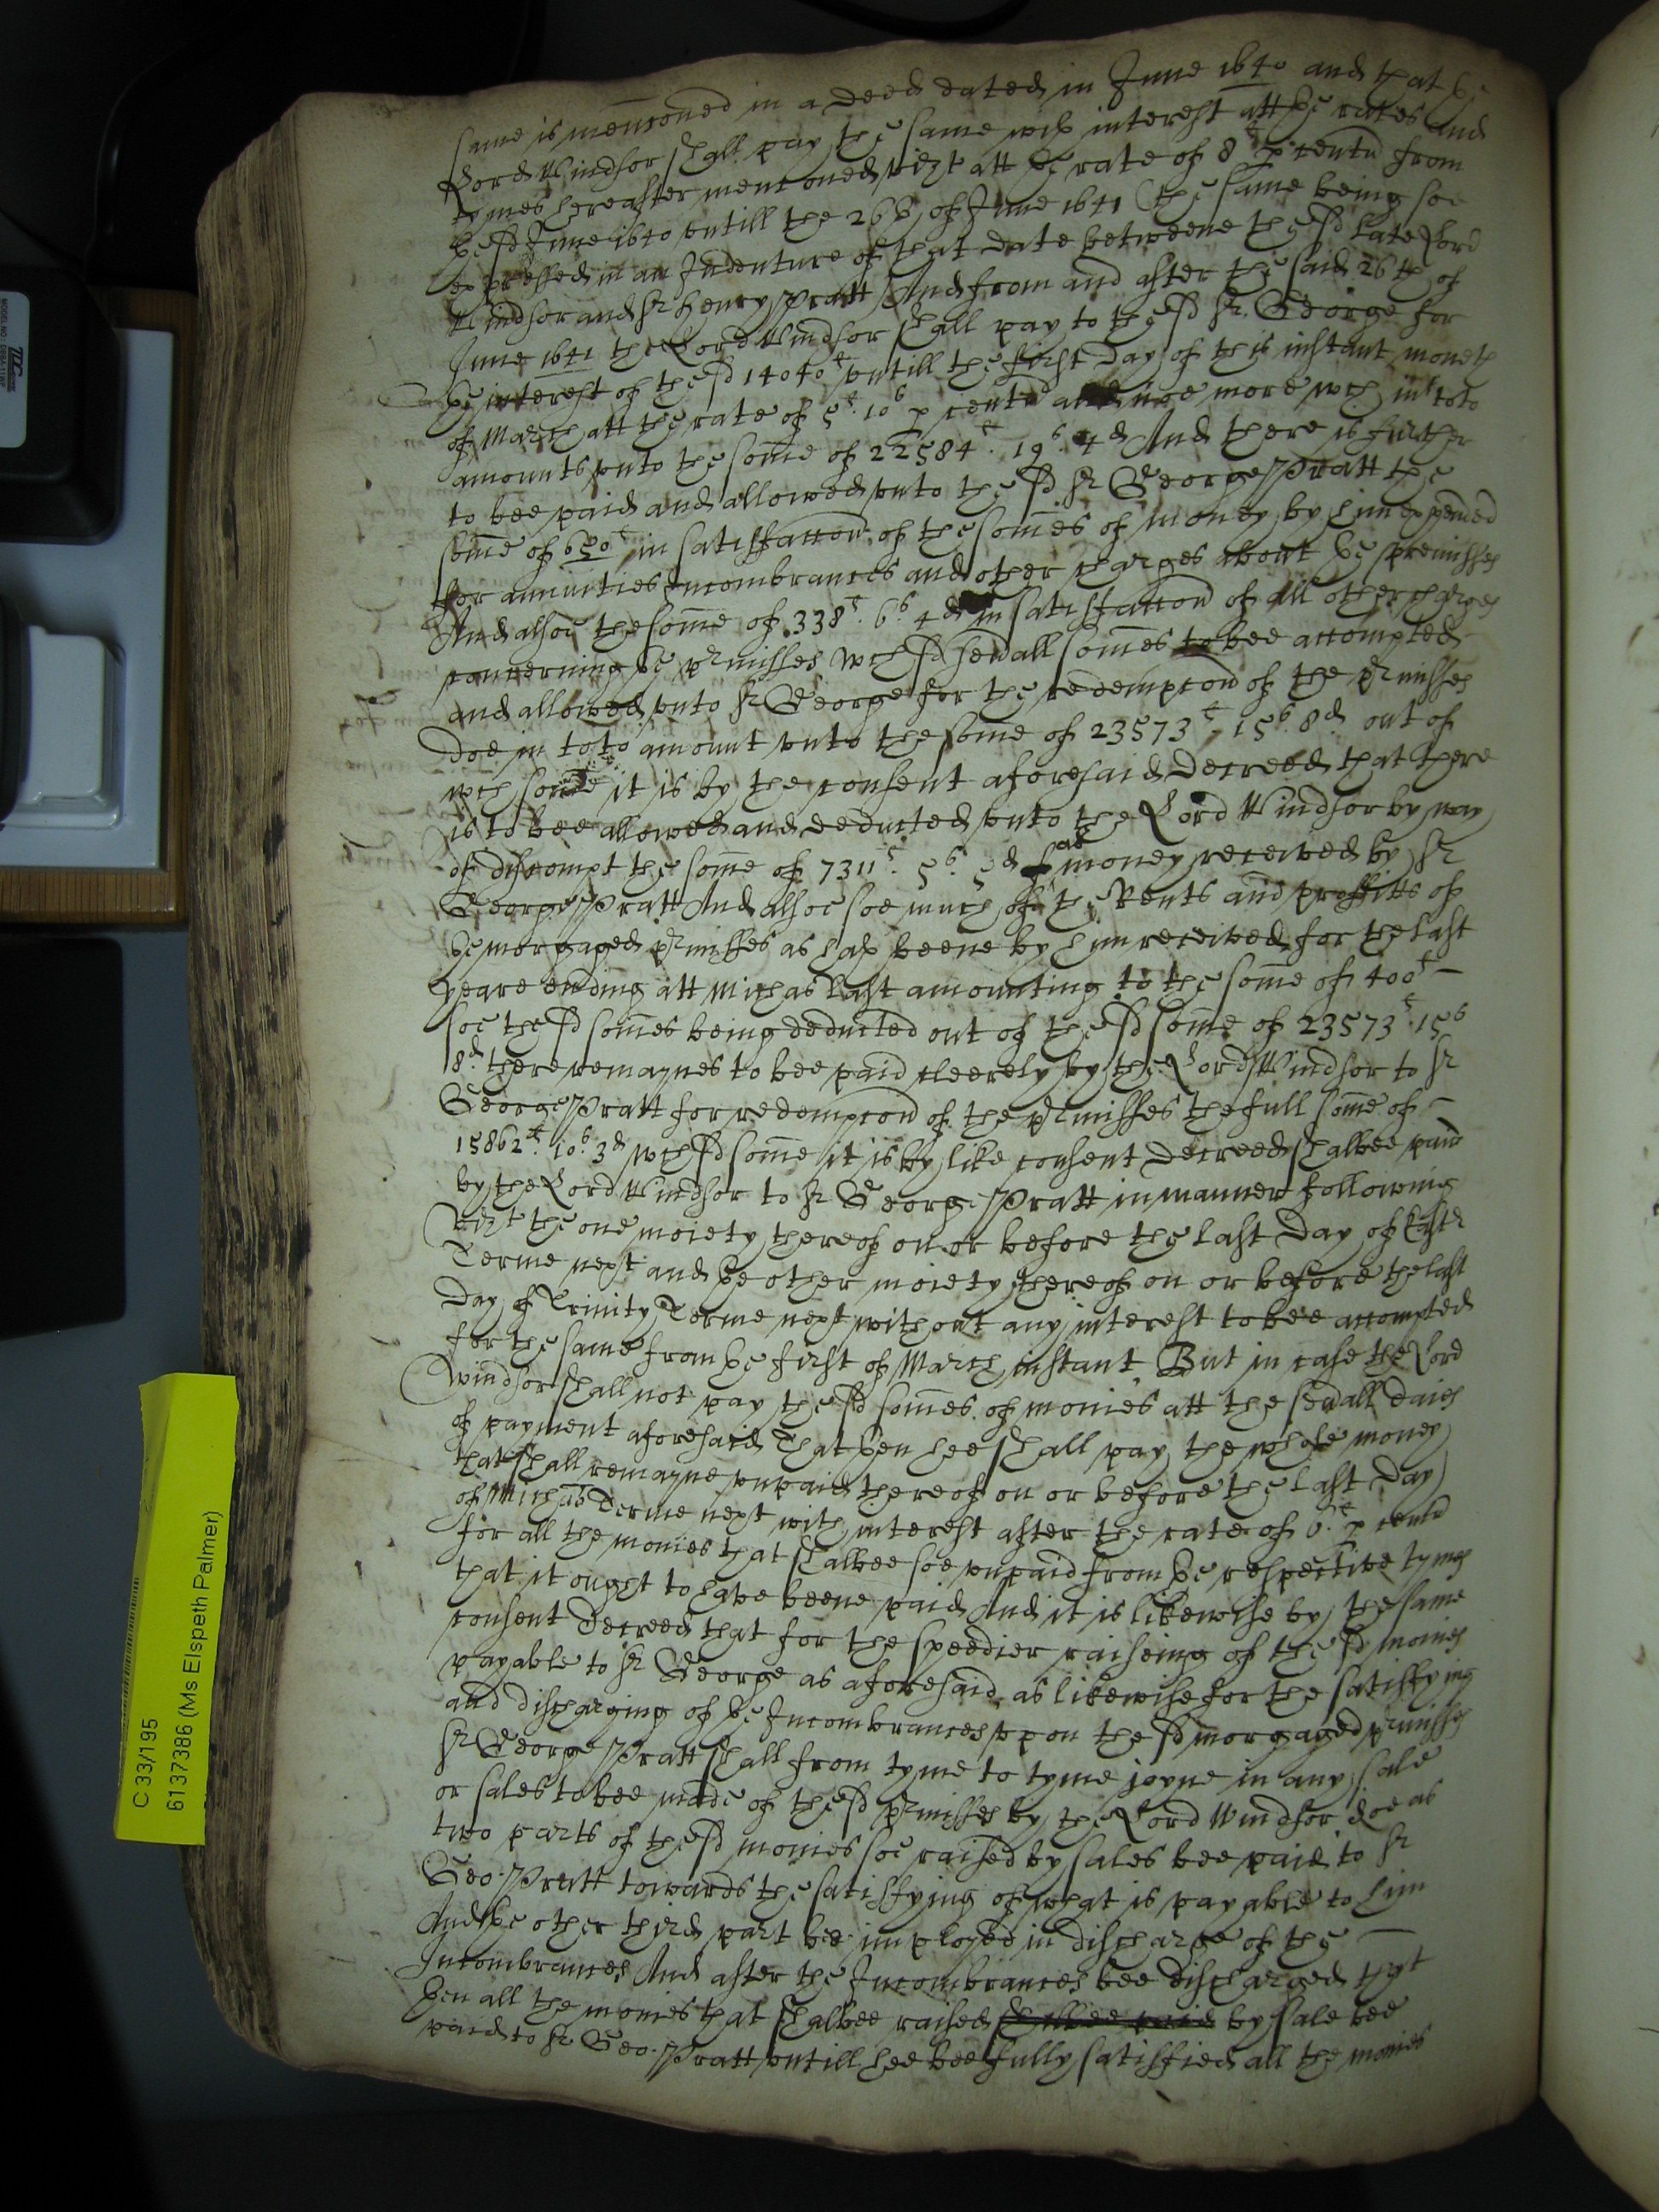 same is mencõned in a deed dated in June 1640 and that ye
Lord Windsor shall pay the same wth interest att ye rates and
tymes hereafter mencõned vizt att ye rate of 8£ p centũ from
ye sd June 1640 vntill the 26th of June 1641 (the same being soe
expressed in an Indenture of that date betweene the sd late Lord
Windsor and Sr Henry Pratt) And from and after the said 26th of
June 1641 the Lord Windsor shall pay to the sd Sr. George for
ye interest of the sd 14040£ vntill the first day of this instant moneth
of March att the rate of 5£. 10s p centũ and noe more wch in toto
amounts vnto the som̃e of 22584£. 19s. 4d And there is further
to bee paid and allowed vnto the sd Sr George Pratt the
som̃e of 650£ in satisfaccõn of the som̃es of money by him expended
for annuities Incombrances and other charges about ye premisses
And alsoe the som̃e of 338£. 6s. 4d in satisfaccõn of all other charges
concerning ye prmisses wch sd seu̕all som̃es to bee accompted
and allowed vnto Sr George for the redempcõn of the prmisses
doe in toto amount vnto the som̃e of 23573£. 15s. 8d. out of
wch som̃e it is by the consent aforesaid decreed that there
is to bee allowed and deducted vnto the Lord Windsor by way
of discompt the som̃e of 7311£. 5s. 5d as money received by Sr
George Pratt And alsoe soe much of the Rents and proffitts of
ye morgaged prmisses as hath beene by him received for the last
yeare ending att Michas last amounting to the som̃e of 400£
soe the sd som̃es being deducted out of the sd som̃e of 23573£. 15s
8d. there remaynes to bee paid cleerely by the Lord Windsor to Sr
George Pratt for redempcõn of the prmisses the full som̃e of
15862£. 10s. 3d wch sd som̃e it is by like consent decreed shalbee paid
by the Lord Windsor to Sr George Pratt in manner following
Vizt the one moiety thereof on or before the last day of Eastr
Terme next and ye other moiety thereof on or before the last
day of Trinity Terme next without any interest to bee accompted
for the same from ye first of March instant. But in case the Lord
Windsor shall not pay the sd som̃es of monies att the seu̕all daies
of payment aforesaid That then hee shall pay the whole money
that shall remayne vnpaid thereof on or before the last day
of Michas Terme next with interest after the rate of 6.£ p centũ
for all the monies that shalbee soe vnpaid from ye respective tymes
that it ought to have beene paid And it is likewise by the same
consent decreed that for the speedier raiseing of the sd monies
payable to Sr George as aforesaid as likewise for the satisfying
and discharging of ye Incombrances vpon the sd morgaged prmisses
Sr George Pratt shall from tyme to tyme joyne in any sale
or sales to bee made of the sd prmisses by the Lord Windsor soe as
two parts of the sd monies soe raised by sales bee paid to Sr
Geo: Pratt towards the satisfying of what is payable to him
And ye other third part bee imployed in discharge of the
Incombrances And after the Incombrances bee discharged that
then all the monies that shalbee raised shalbee paid by sale bee
paid to Sr Geo: Pratt vntill hee bee fully satisfied all the monies
C 33/195
6137386 (Ms Elspeth Palmer)